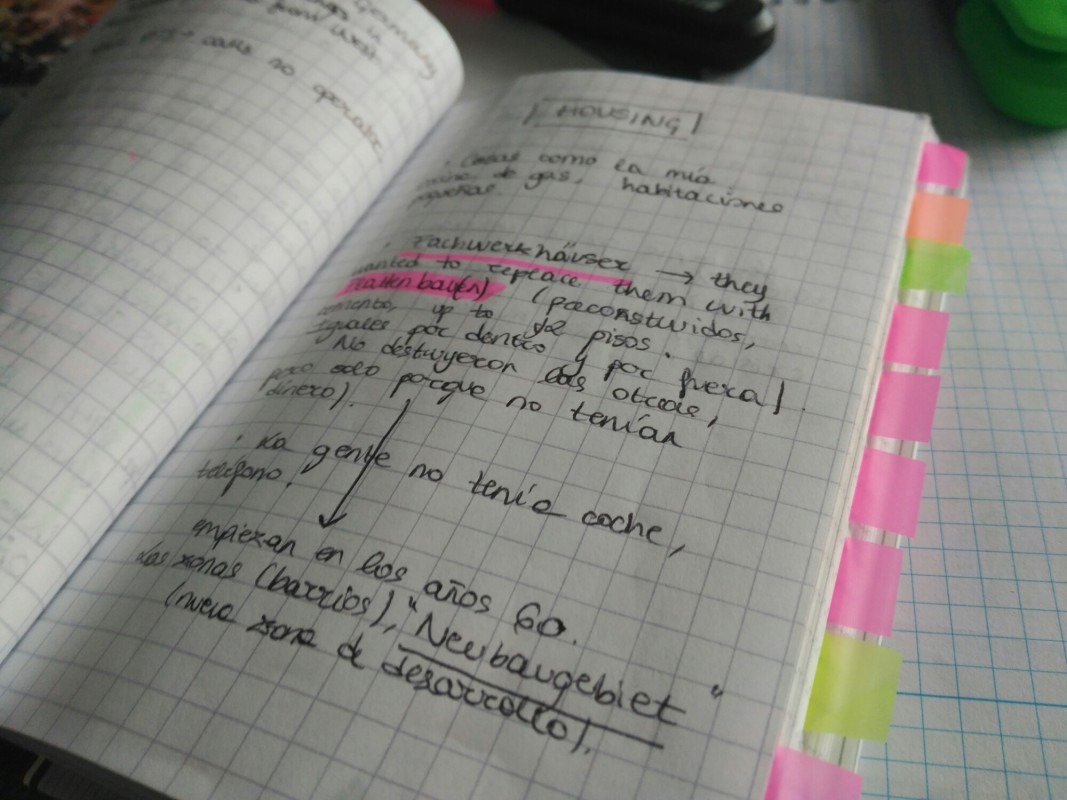 Germany
casas no apercades
HOUSING
. Casas como la mía
cocina de gas, habitaciones
pequeñas.
. Fachwerkhäuser → they
wanted to replace them with
Plattenbau(n) (preconstruidos,
cemento, up to pisos.
Iguales por dentro y por fuera).
No destuyeron las otras,
pero solo porque no tenían
dinero).
. La gente no tenía coche,
teléfono.
empiezan en los años 60.
las zonas (barrios), "Neubaugebiet"
(nueva zona de desarrollo).